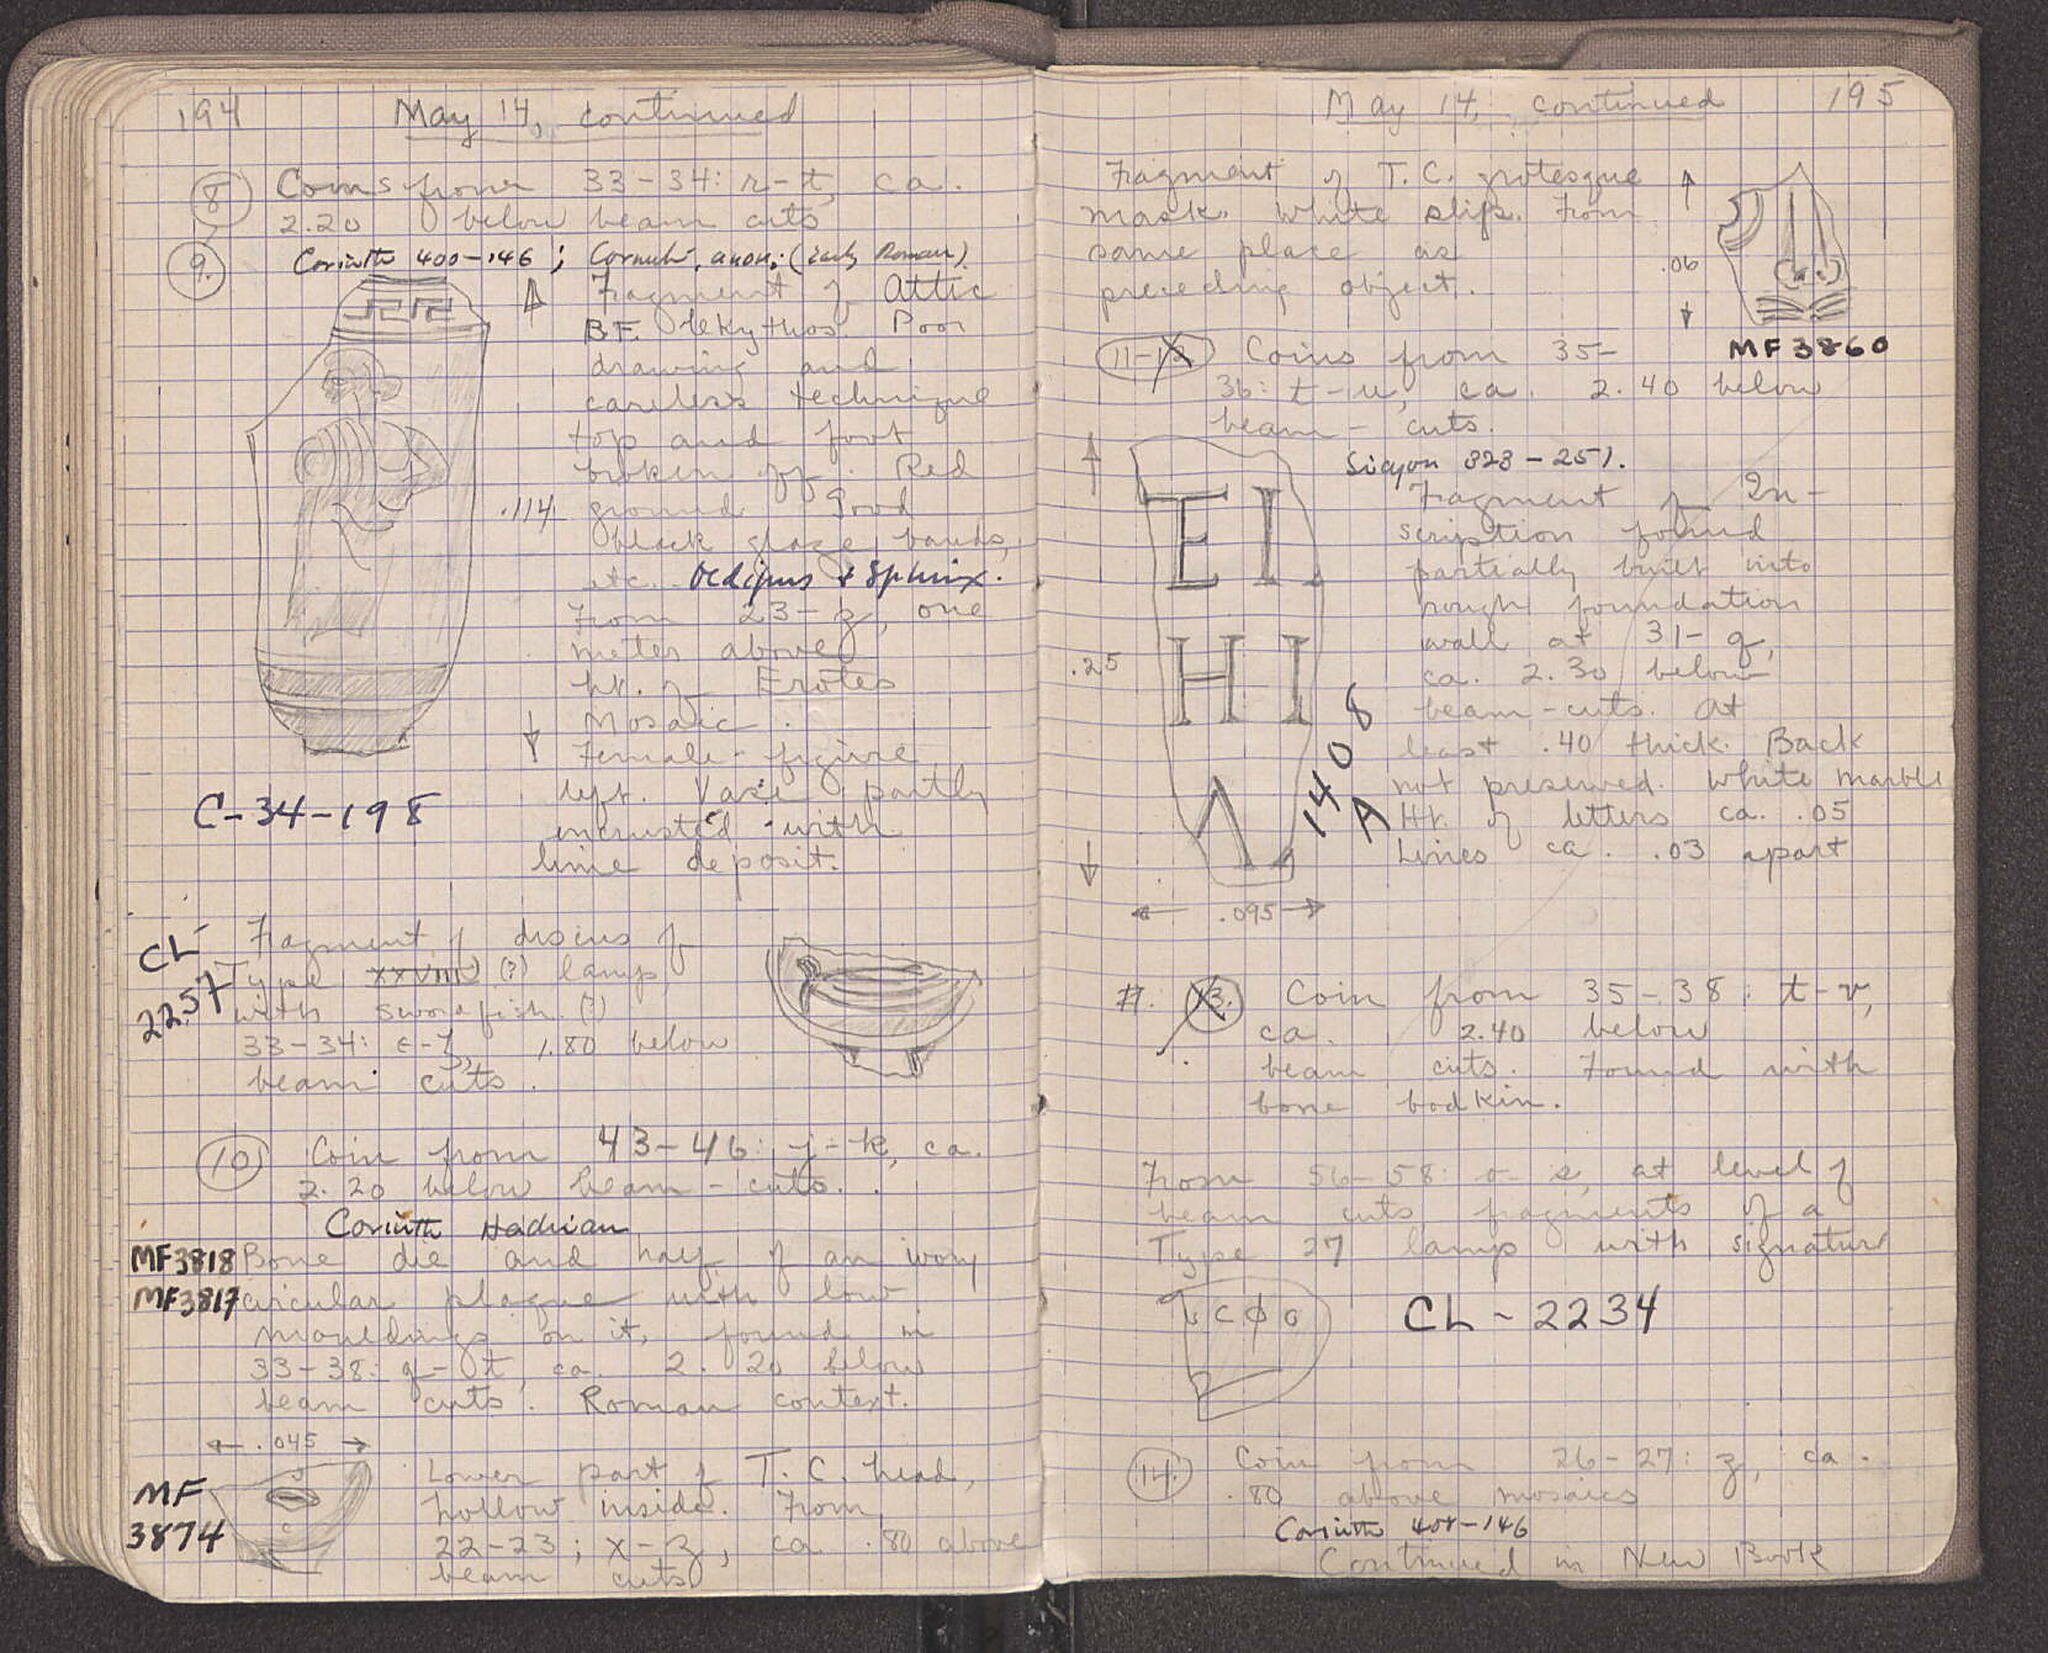 194
May 14, continued
8 Coins from 33-34: r-t, ca.
2.20 below beam cuts
9. Corinth 400-146; Corinth, anon. (Early Roman)
Fragment of Attic
B.F. lekythos. Poor
drawing and
careless technique
top and foot
broken off. Red
.114 ground Good
black glaze bands,
etc. Oedipus & Sphinx.
From 23-z, one
meter above
ht. of Erotes
Mosaic.
Female figure
left. Vase partly
encrusted with
lime deposit.
C-34-198
CL-
2257
Fragment of discus of
Type XXVIII (?) lamp,
with swordfish (?)
33-34: 1.80 below
beam cuts.
10 Coin from 43-46: j-k, ca.
2.20 below beam-cuts.
Corinth Hadrian
MF3818 Bone die and half of an ivory
MF3817 circular plaque with low
mouldings on it, found in
33-38: q-t, ca. 2.20 below
beam cuts. Roman context.
.045
MF
3874
Lower part of T.C. head,
hollow inside. From
22-23; x-z, ca .80 above
beam cuts
May 14, continued 195
Fragment of T.C. grotesque
mask. White slip. From
same place as
preceding object.
.06
MF3860
11-12 Coins from 35-
36: t-u, ca. 2.40 below
beam-cuts.
Sicyon 323-251.
ΕΙ
ΗΙ
Λ
.25
.095
A 1408
Fragment of In-
scription found
partially built into
rough foundation
wall at 31-q,
ca. 2.30 below
beam-cuts. At
least .40 thick. Back
not preserved. White marble
Ht. of letters ca. .05
Lines ca. .03 apart
13. Coin from 35-38: t-v,
ca. 2.40 below
beam cuts. Found with
bone bodkin.
From 56-58: o-s, at level of
beam cuts fragments of a
Type 27 lamp with signature
CL-2234
14. Coin from 26-27: z, ca.
.80 above mosaics
Corinth 400-146
Continued in New Book